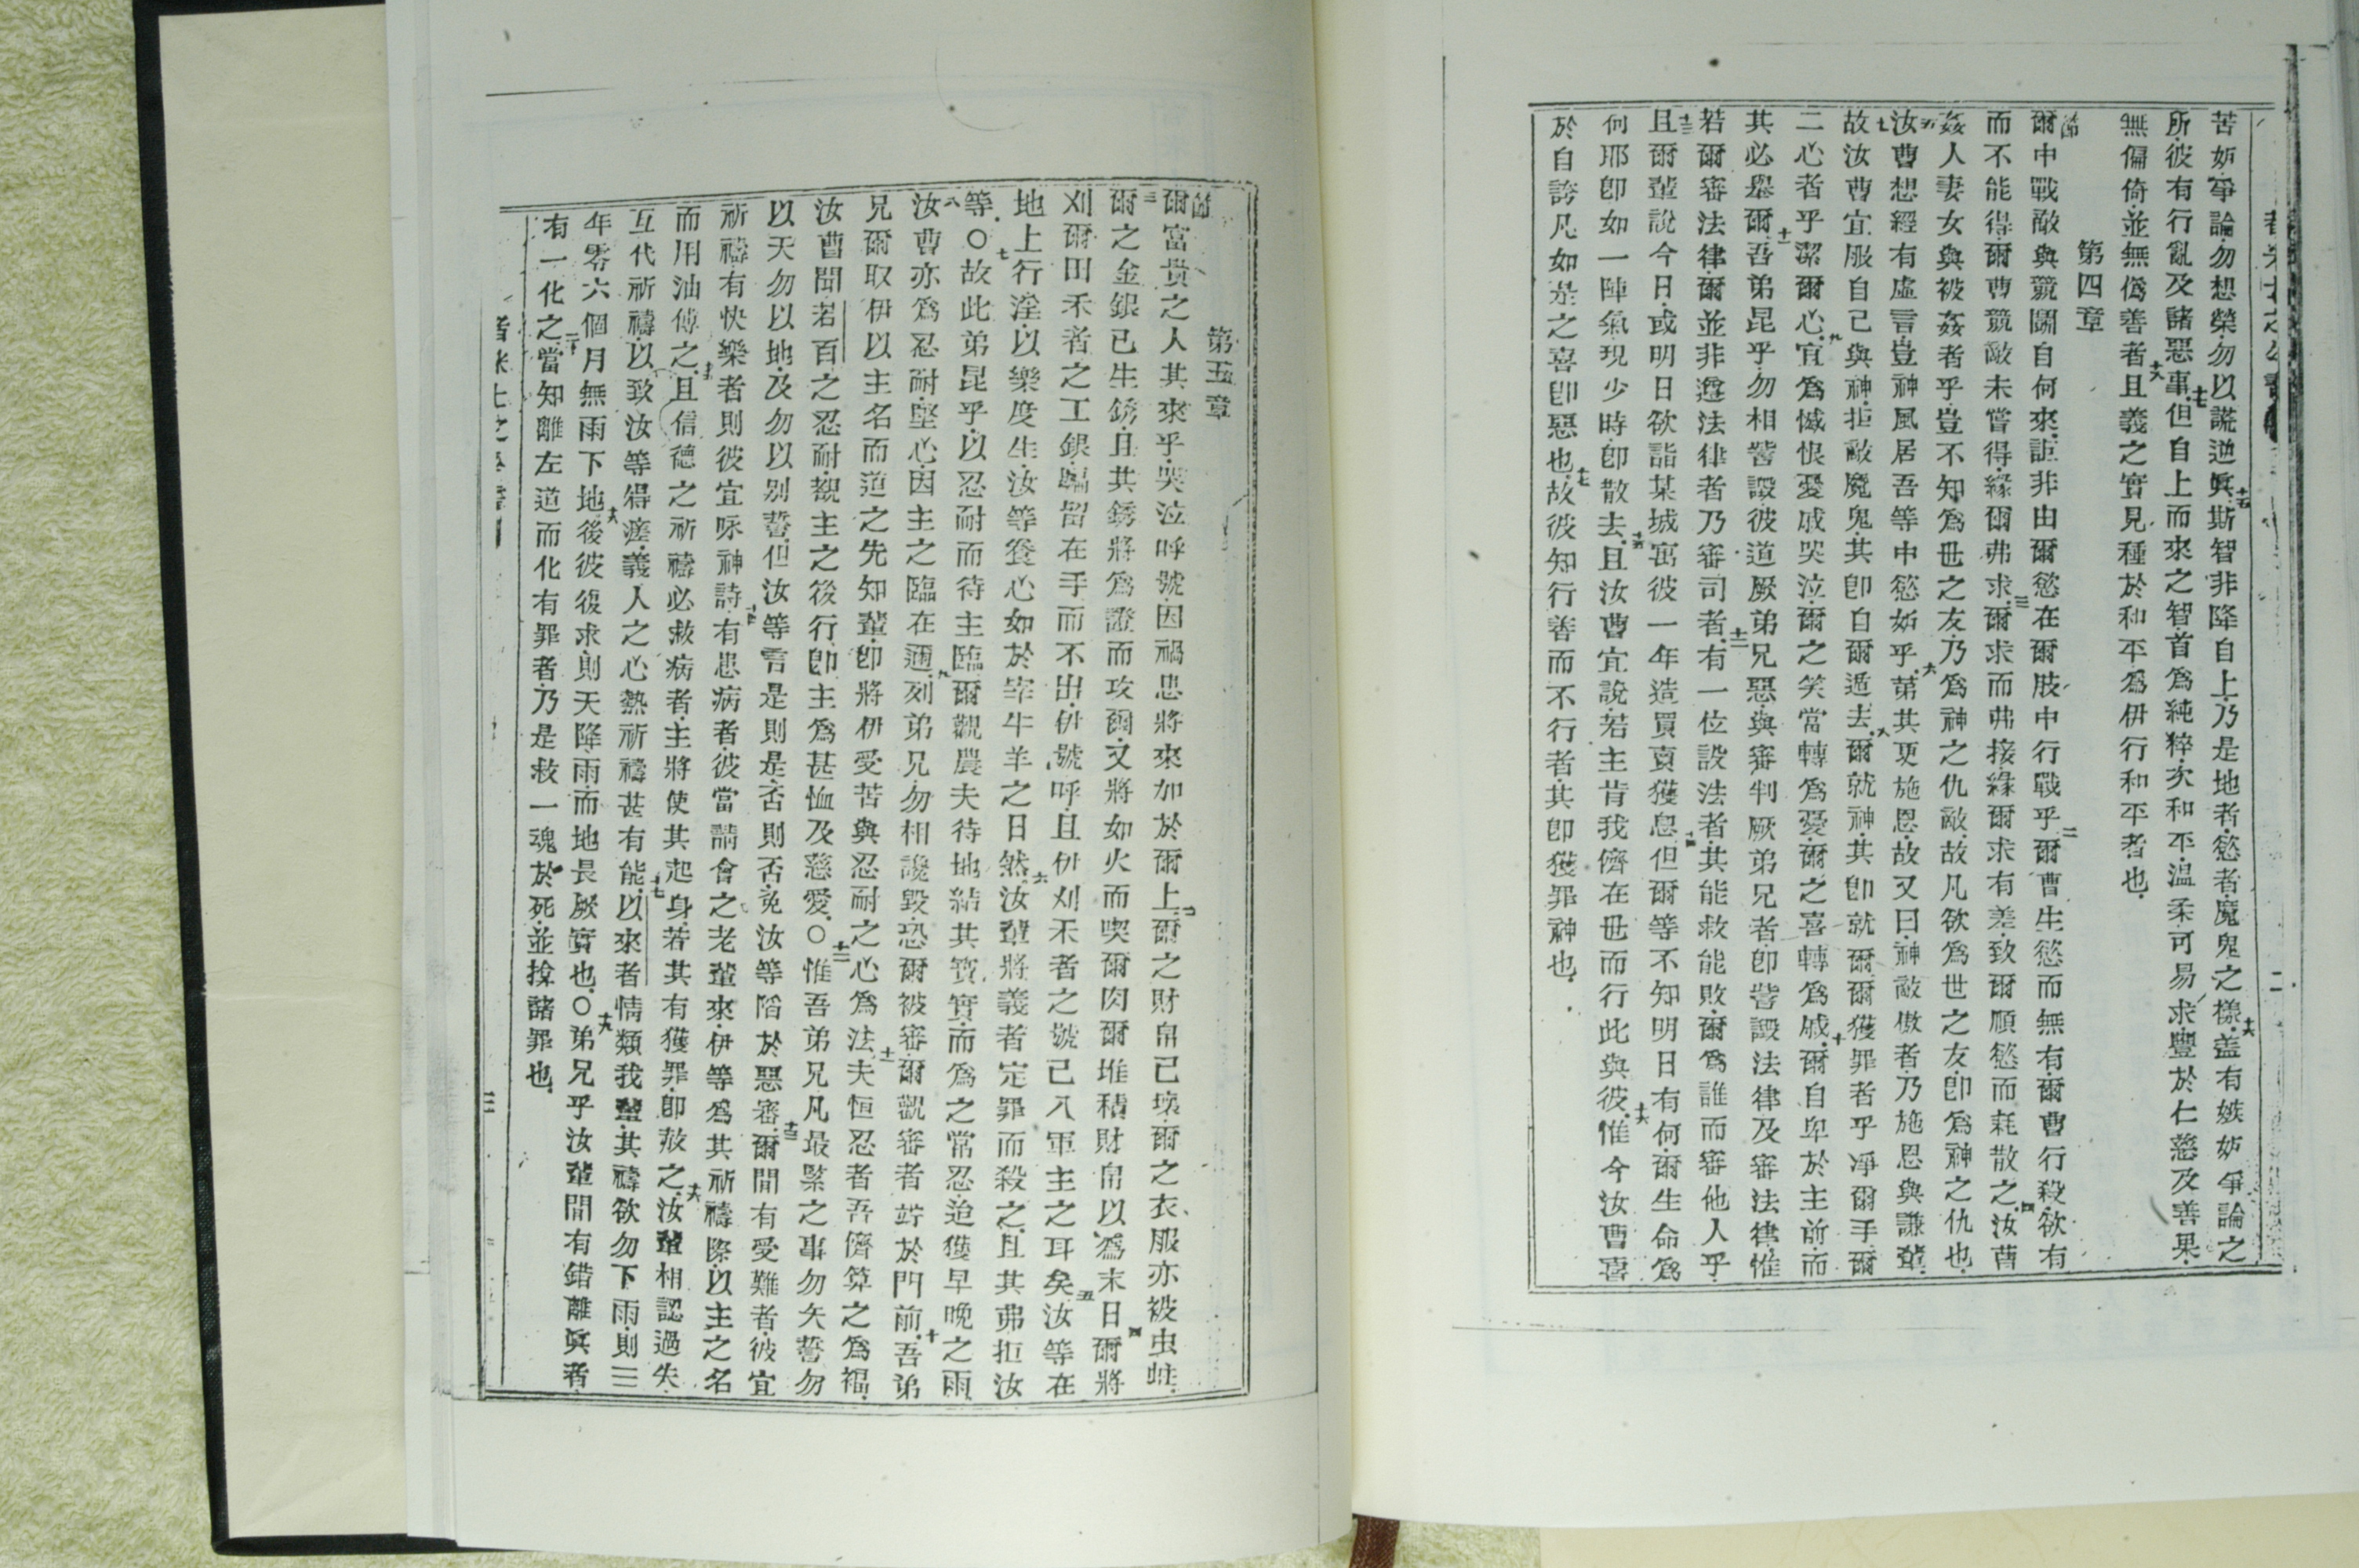 苦妬爭論勿想榮勿以謊逆眞斯智非降自上乃是地者慾者魔鬼之樣盖有嫉妬爭論之
所彼有行亂及諸惡事但自上而來之智首爲純粹次和平温柔可易求豐於仁慈及善果
無偏倚並無僞善者且義之實見種於和平爲伊行和平者也
第四章
爾中戰敵與競鬬自何來詎非由爾慾在爾肢中行戰乎爾曹生慾而無有爾曹行殺欲有
而不能得爾曹競敵未嘗得緣爾弗求爾求而弗接緣爾求有差致爾順慾而耗散之汝曹
姦人妻女與被姦者乎豈不知爲世之友乃爲神之仇敵故凡欲爲世之友卽爲神之仇也
汝曹想經有虛言豈神風居吾等中慾妬乎第其更施恩故又曰神敵傲者乃施恩與謙輩
故汝曹宜服自己與神拒敵魔鬼其卽自爾遁去爾就神其卽就爾爾獲罪者乎淨爾手爾
二心者乎潔爾心宜爲憾恨憂戚哭泣爾之笑當轉爲憂爾之喜轉爲戚爾自卑於主前而
其必舉爾吾弟昆乎勿相訾譭彼道厥弟兄惡與審判厥弟兄者卽訾譭法律及審法律惟
若爾審法律爾並非遵法律者乃審司者有一位設法者其能救能敗爾爲誰而審他人乎
且爾輩說今日或明日欲詣某城寓彼一年造買賣獲息但爾等不知明日有何爾生命爲
何耶卽如一陣氣現少時卽散去且汝曹宜說若主肯我儕在世而行此與彼惟今汝曹喜
於自誇凡如是之喜卽惡也故彼知行善而不行者其卽獲罪神也
二
第五章
爾富貴之人其來乎哭泣呼號因禍患將來加於爾上爾之財帛已壞爾之衣服亦被虫蛀
爾之金銀已生銹且其銹將爲證而攻爾又將如火而喫爾肉爾堆積財帛以爲末日爾將
刈爾田禾者之工銀騙留在手而不出伊號呼且伊刈禾者之號已入軍主之耳矣汝等在
地上行淫以樂度生汝等養心如於宰牛羊之日然汝輩將義者定罪而殺之且其弗拒汝
等○故此弟昆乎以忍耐而待主臨爾觀農夫待地結其寶實而爲之常忍迨獲早晚之雨
汝曹亦爲忍耐堅心因主之臨在邇列弟兄勿相讒毀恐爾被審爾觀審者竚於門前吾弟
兄爾取伊以主名而道之先知輩卽將伊受苦與忍耐之心爲法夫恒忍者吾儕算之爲福
汝曹聞若百之忍耐觀主之後行卽主爲甚恤及慈愛○惟吾弟兄凡最緊之事勿矢誓勿
以天勿以地及勿以别誓但汝等言是則是否則否免汝等陷於惡審爾間有受難者彼宜
祈禱有快樂者則彼宜咏神詩有患病者彼當請會之老輩來伊等爲其祈禱際以主之名
而用油傅之且信德之祈禱必救病者主將使其起身若其有獲罪卽赦之汝輩相認過失
互代祈禱以致汝等得痊義人之心熱祈禱甚有能以來者情類我輩其禱欲勿下雨則三
年零六個月無雨下地後彼復求則天降雨而地長厥實也○弟兄乎汝輩間有錯離眞者
有一化之當知離左道而化有罪者乃是救一魂於死並揜諸罪也
三